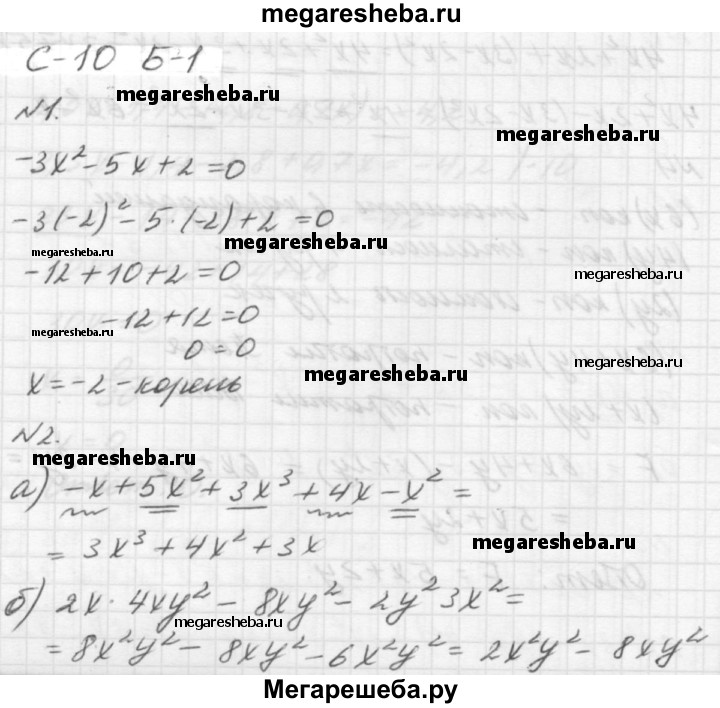 megaresheba.ru
С-10 Б-1
megaresheba.ru
№1.
megaresheba.ru
-3x² - 5x + 2 = 0
-3(-2)² - 5·(-2) + 2 = 0
megaresheba.ru
megaresheba.ru
-12 + 10 + 2 = 0
megaresheba.ru
-12 + 12 = 0
megaresheba.ru
0 = 0
megaresheba.ru
x = -2 - корень
№2.
megaresheba.ru
а) -x + 5x² + 3x³ + 4x - x² =
= 3x³ + 4x² + 3x
megaresheba.ru
б) 2x · 4xy² - 8xy² - 2y² 3x² =
megaresheba.ru
= 8x²y² - 8xy² - 6x²y² = 2x²y² - 8xy²
Мегарешеба.ру